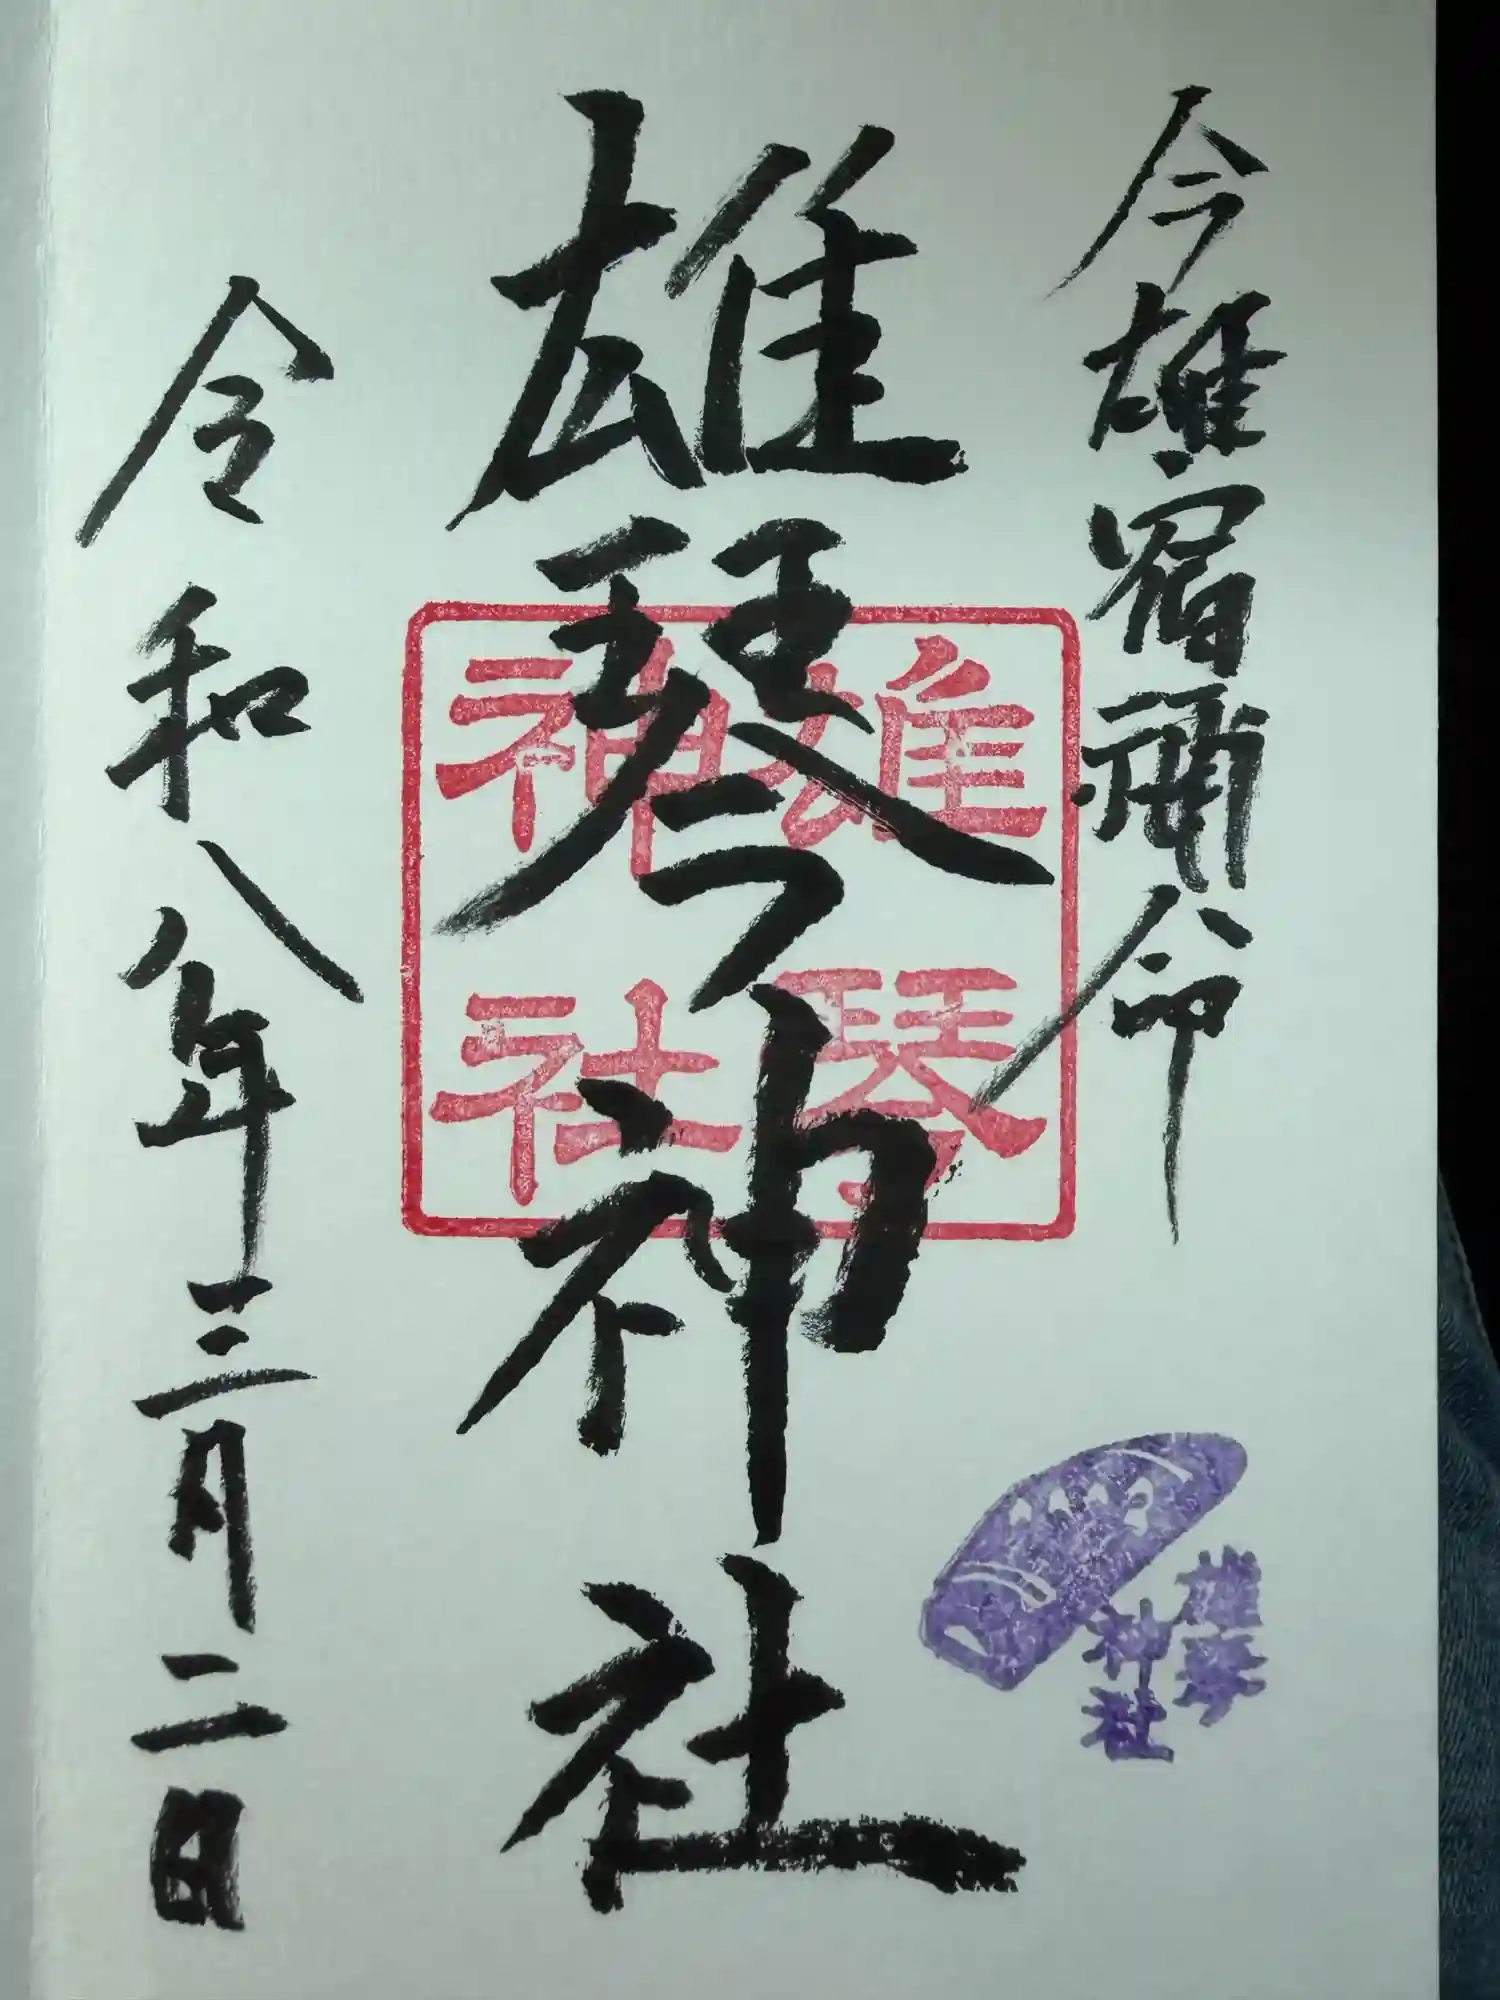 今雄宿禰命
雄琴神社
雄琴
神社
令和八年三月二日
雄琴
神社